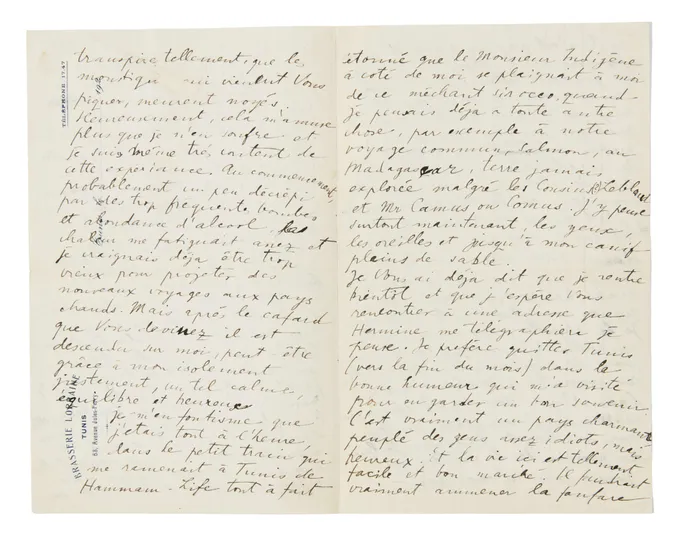 transpire tellement, que le
moustique qui vient Vous
piquer, meurent noyés
Heureusement, cela m'amuse
plus que je n'en souffre et
je suis même très content de
cette experiance. Au commencement,
probablement un peu décrépi
par des trop frequents bombes
et abondance d'alcool, las
chaleur me fatiguait assez et
je craignais déja être trop
vieux pour projeter des
nouveaux voyages aux pays
chauds. Mais après le cafard
que Vous devinez il est
descendu sur moi, peut-être
grâce à mon isolement
justement, un tel calme,
equilibre et heureux
je m'en foutisme que
j'etais tout à l'heure,
dans le petit train qui
me ramenait à Tunis de
Hammam-Life tout à fait
TÉLÉPHONE 17.47
BRASSERIE LORRAINE
TUNIS
58, Avenue Jules-Ferry
étonné que le Monsieur Indigène
à coté de moi se plaignait à moi
de ce méchant sirocco, quand
je pensais déja a toute autre
chose, par exemple à notre
voyage commun, Salmon, au
Madagascar, terre jamais
explorée malgré les Cousins Leblond
et Mr Camus ou Comus. J'y pense
surtout maintenant, les yeux,
les oreilles et jusqu'à mon canif
plains de sable.
Je Vous ai déja dit que je rentre
bientôt et que j'espère Vous
rencontrer à une adresse que
Hermine me télégraphiera je
pense. Je prefère quitter Tunis
(vers la fin du mois) dans la
bonne humeur qui m'a visité
pour en garder un bon souvenir.
C'est vraiment un pays charmant
peuplé des gens assez idiots, mais
heureux. Et la vie ici est tellement
facile et bon marché. Il faudrait
vraiment ammener la fanfare